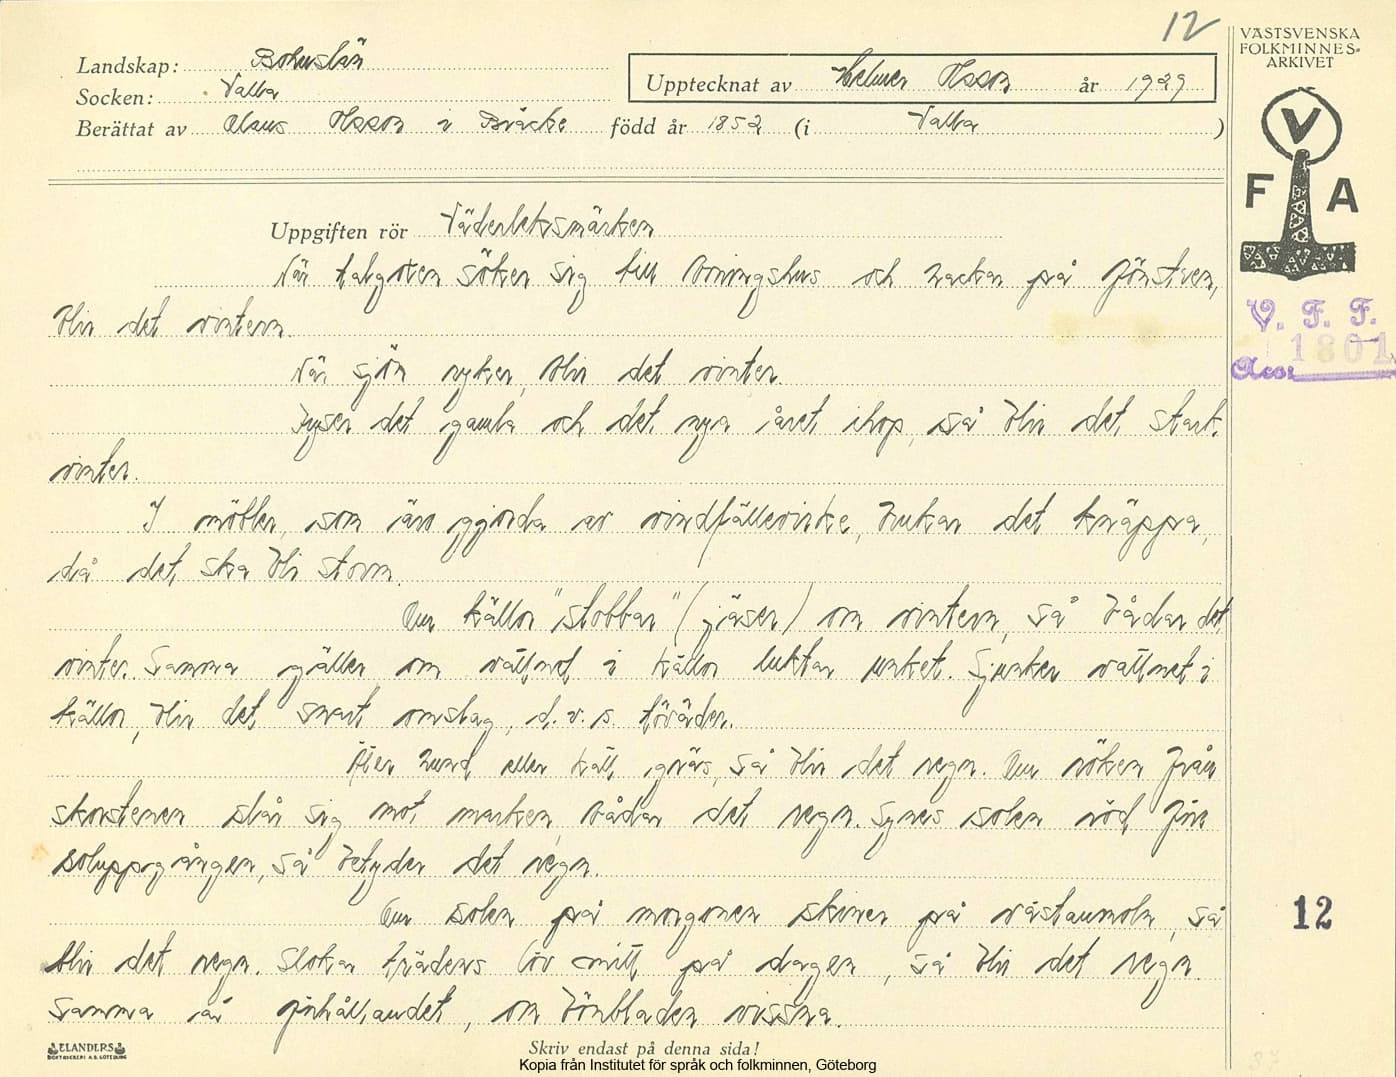 12
VÄSTSVENSKA
FOLKMINNES-
ARKIVET
Landskap: Bohuslän
Socken: Valbo
Upptecknat av Helmer Olsson år 1929
Berättat av Claus Olsson i Bräcke född år 1852 (i Valbo)
V
F A
Uppgiften rör Väderleksmärken
När talgoxen söker sig till boningshus och hackar på fönstren,
blir det vintern.
V. F. F.
1801
Acc:
När sjön ryker, blir det vinter.
Fryser det gamla och det nya året ihop, så blir det stark
vinter.
I möbler, som äro gjorda av vindfällevirke, brukar det knäppa,
då det ska bli storm.
Om källor "stobbar" (jäser) om vintern, så bådar det
vinter. Samma gäller om vattnet i källor luktar unket. Sjunker vattnet i
källor, blir det snart omslag, d.v.s. töväder.
Äter hund eller katt gräs, så blir det regn. Om röken från
skorstenen slår sig mot marken, bådar det regn. Synes solen röd före
soluppgången, så betyder det regn.
Om solen på morgonen skiner på västanmoln, så
blir det regn. Slokar trädens löv mitt på dagen, så blir det regn.
Samma är förhållandet, om bönbladen vissna.
12
ELANDERS
BOKTRYCKERI A.B. GÖTEBORG
Skriv endast på denna sida!
Kopia från Institutet för språk och folkminnen, Göteborg
37